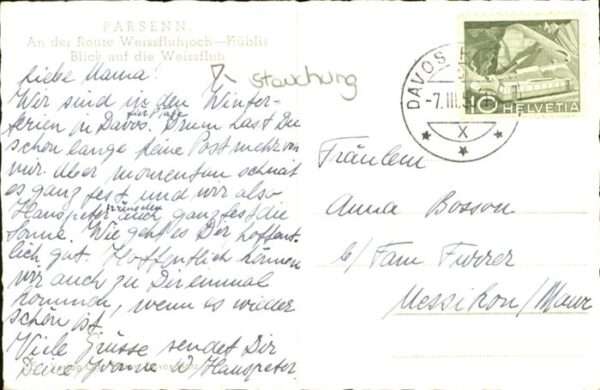 PARSENN.
An der Route Weissfluhjoch—Küblis
Blick auf die Weissfluh
Stauchung
Liebe Mama!
Wir sind in den Winter-
ferien in Davos. Drum hast Du
schon lange keine Post mehr von
mir. Aber momentan schneit
es ganz fest und wir also
Hanspeter auch wünschen ganz fest die
Sonne. Wie geht es Dir hoffent-
lich gut. Hoffentlich können
wir auch zu Dir einmal
kommen, wenn es wieder
schön ist.
Viele Grüsse sendet Dir
Deine Yvonne u/ Hanspeter
DAVOS
-7.III.5
X
10 HELVETIA
Fräulein
Anna Bosson
b/ Fam Furrer
Uessikon/Maur